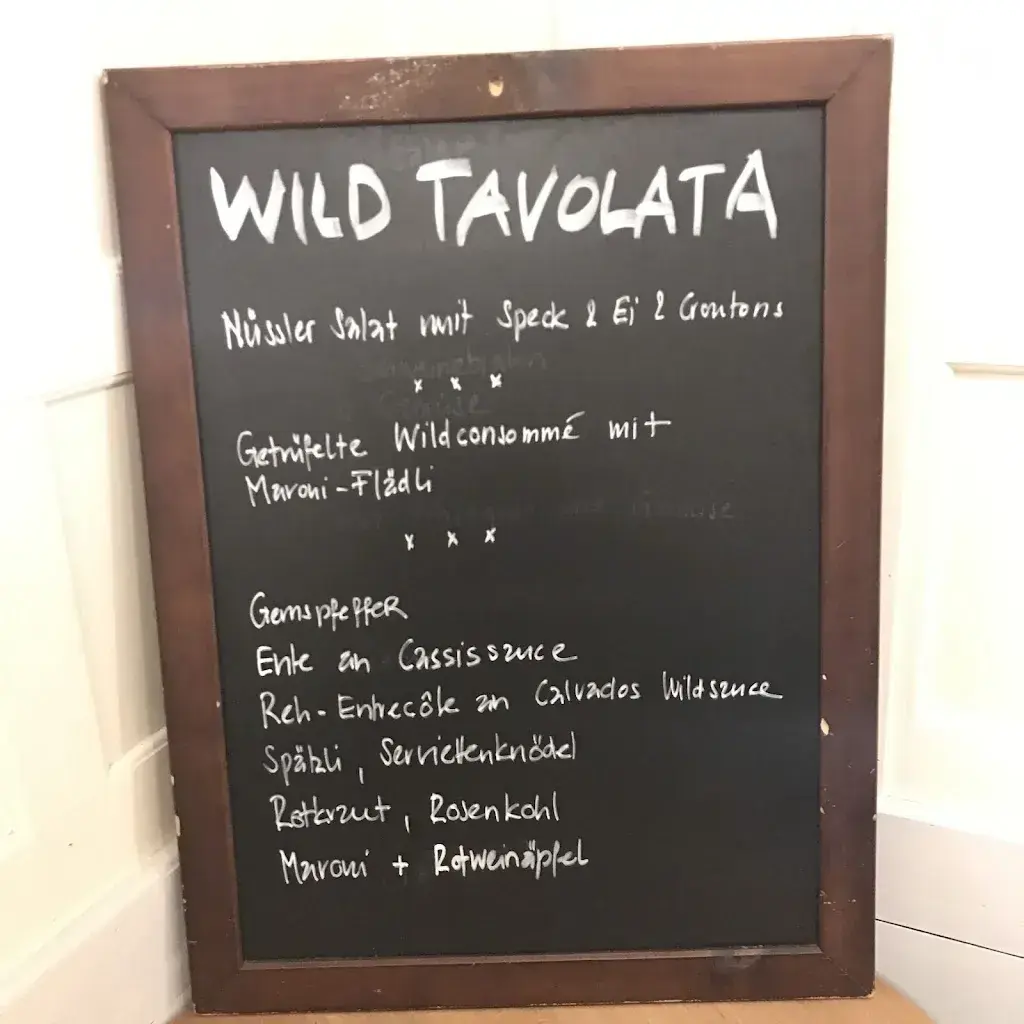 WILD TAVOLATA
Nüssler Salat mit Speck & Ei & Croutons
x x x
Getrüfelte Wildconsommé mit
Maroni-Flädli
x x x
Gemspfeffer
Ente an Cassissauce
Reh-Entrecôte an Calvados Wildsauce
Spätzli, Serviettenknödel
Rotkraut, Rosenkohl
Maroni + Rotweinäpfel